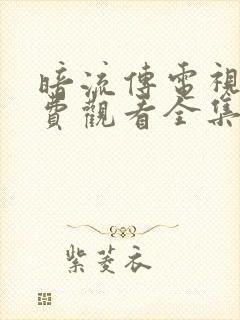 暗流傳電視
費觀看全集
紫菱衣